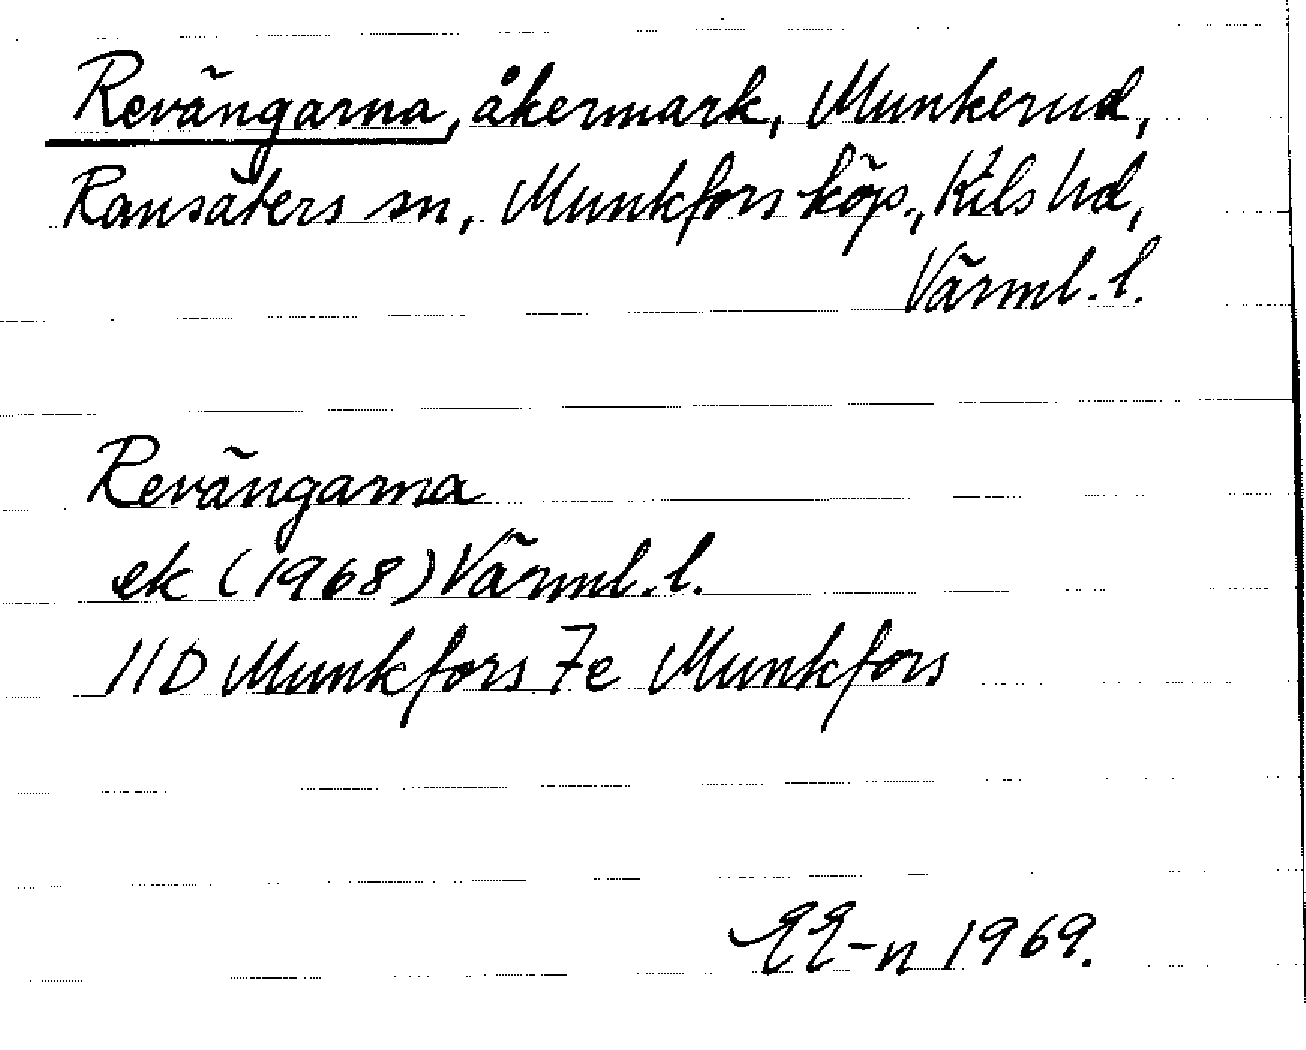 Revängarna, åkermark, Munkerud,
Ransäters sn, Munkfors köp., Kils hd,
Värml. l.
Revängarna
ek (1968) Värml. l.
11D Munkfors 7e Munkfors
EE-n 1969.